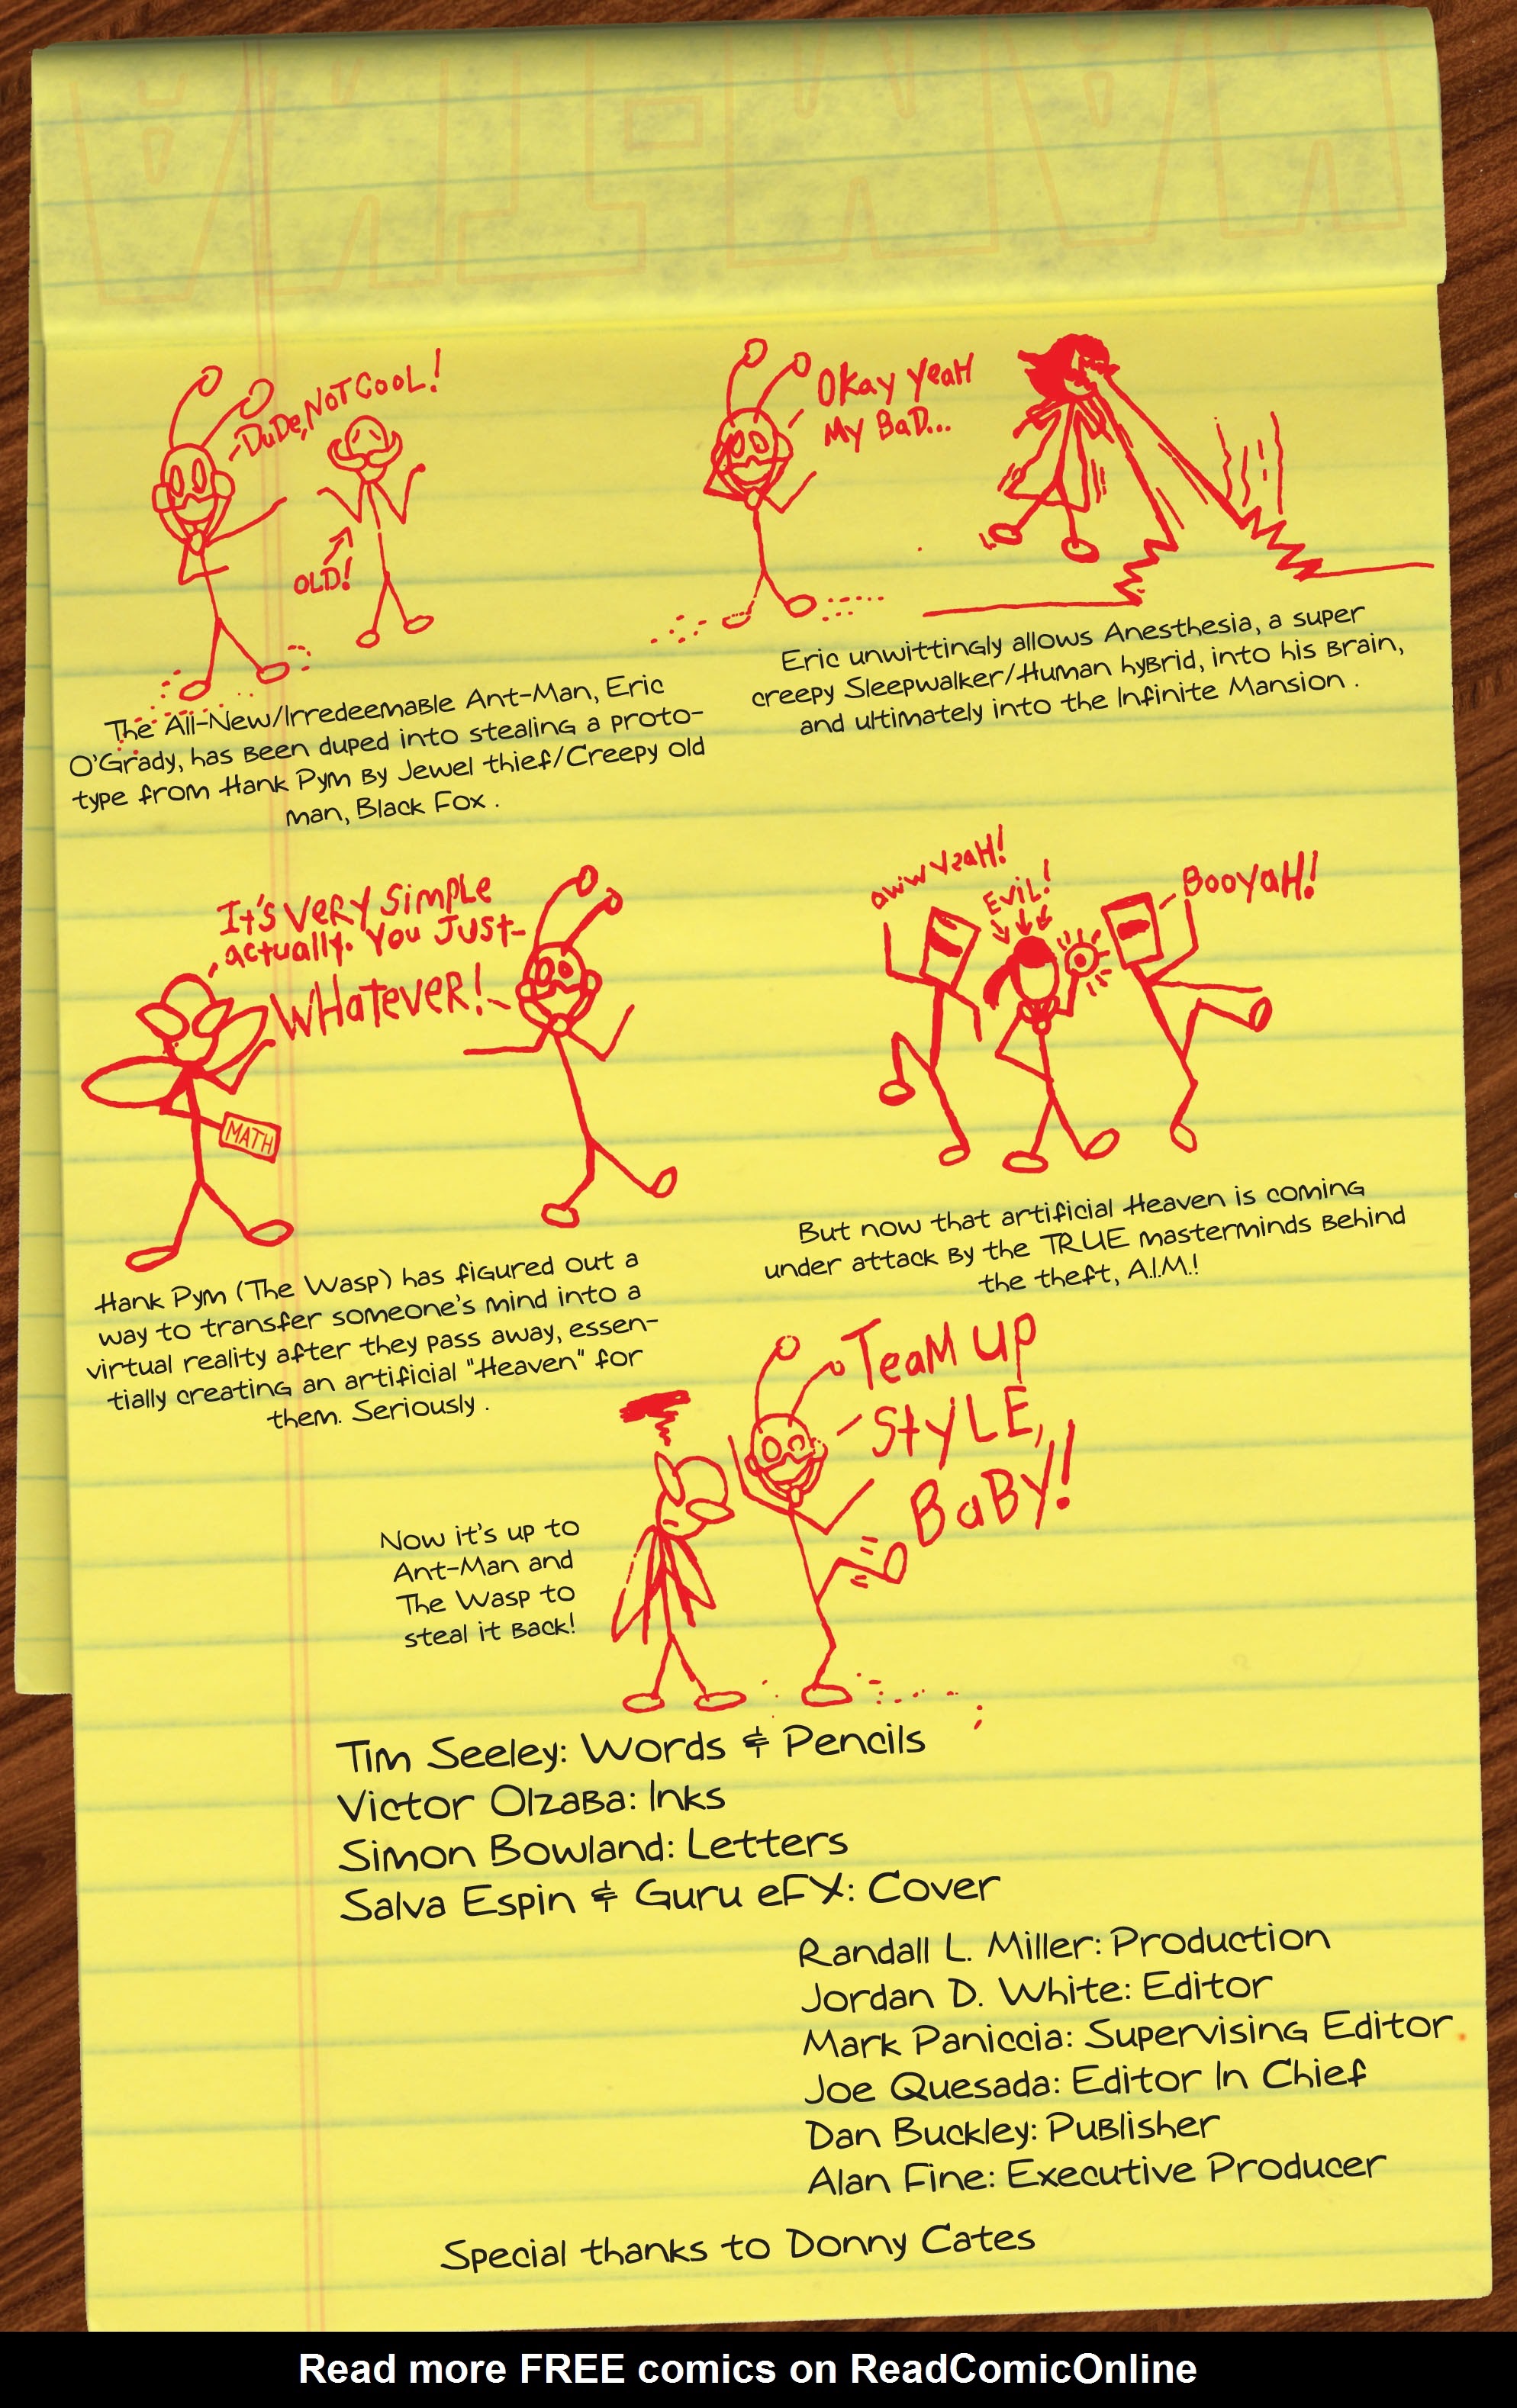 DuDe, NOT COOL!
OLD!
The All-New/Irredeemable Ant-Man, Eric
O'Grady, has been duped into stealing a proto-
type from Hank Pym by Jewel thief/Creepy old
man, Black Fox.
Okay yeaH
My BaD...
Eric unwittingly allows Anesthesia, a super
creepy Sleepwalker/Human hybrid, into his brain,
and ultimately into the Infinite Mansion.
It's VeRy SimpLe
actually. You Just-
WHateveR!
MATH
Hank Pym (The Wasp) has figured out a
way to transfer someone's mind into a
virtual reality after they pass away, essen-
tially creating an artificial "Heaven" for
them. Seriously.
aww yeaH!
EviL!
BooyaH!
But now that artificial Heaven is coming
under attack by the TRUE masterminds behind
the theft, A.I.M.!
TeaM up
StyLE,
BaBy!
Now it's up to
Ant-Man and
The Wasp to
steal it back!
Tim Seeley: Words & Pencils
Victor Olzaba: Inks
Simon Bowland: Letters
Salva Espin & Guru eFX: Cover
Randall L. Miller: Production
Jordan D. White: Editor
Mark Paniccia: Supervising Editor
Joe Quesada: Editor In Chief
Dan Buckley: Publisher
Alan Fine: Executive Producer
Special thanks to Donny Cates
Read more FREE comics on ReadComicOnline